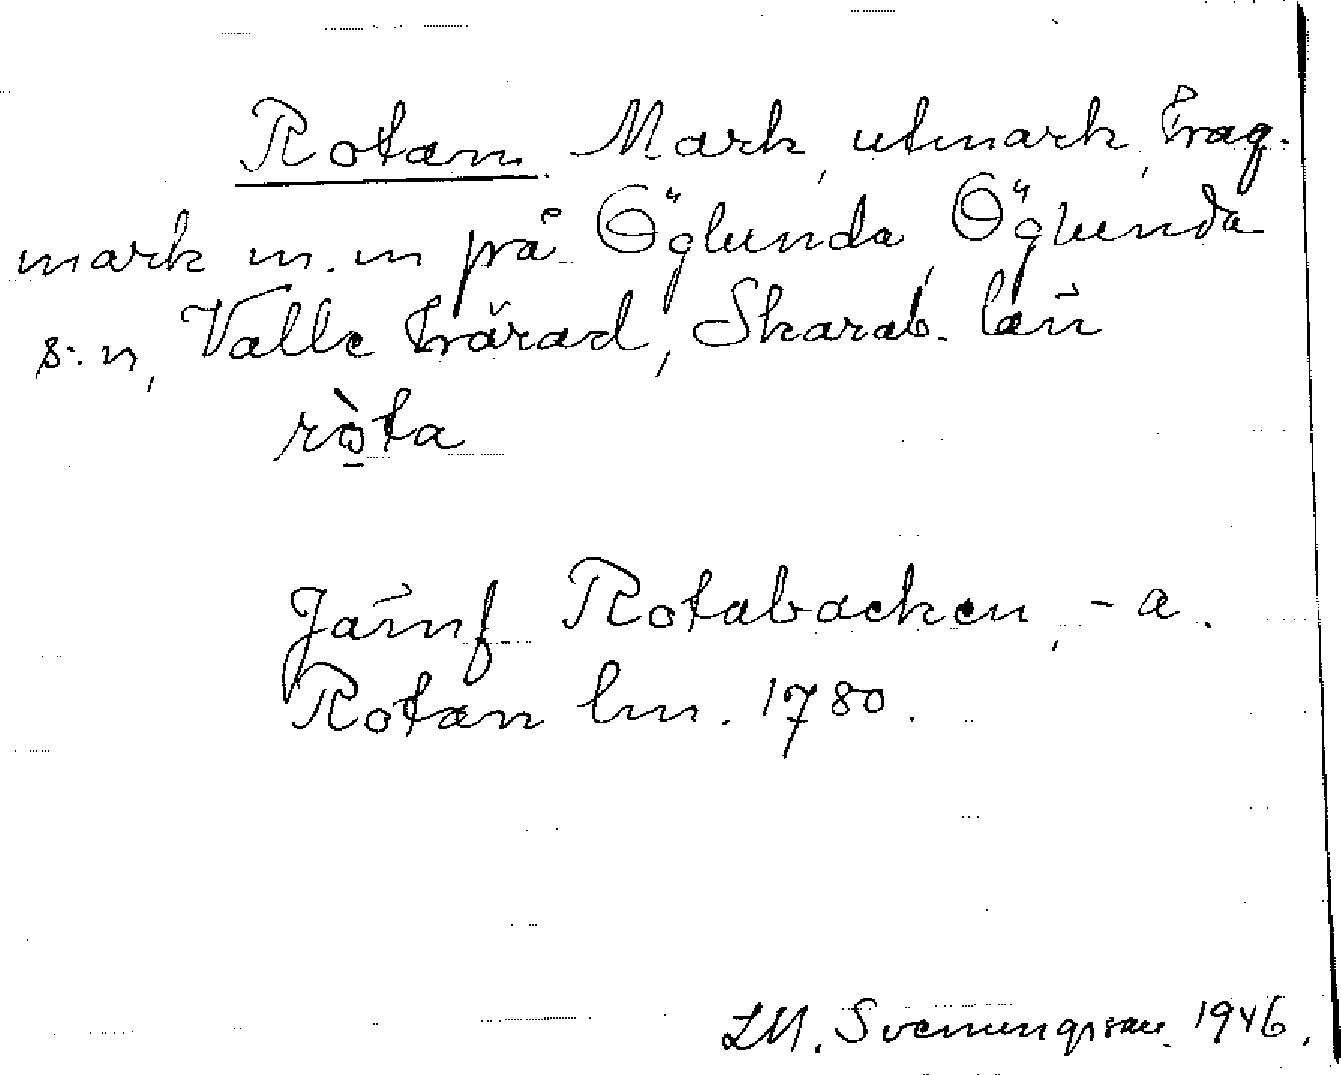 Rotan. Mark, utmark, hag-
mark m.m på Öglunda, Öglunda
s:n, Valle härad, Skarab. län
rò̱ta
Jämf Rotabacken, -a.
Rotan lm. 1780.
LM. Svenungsson 1946.